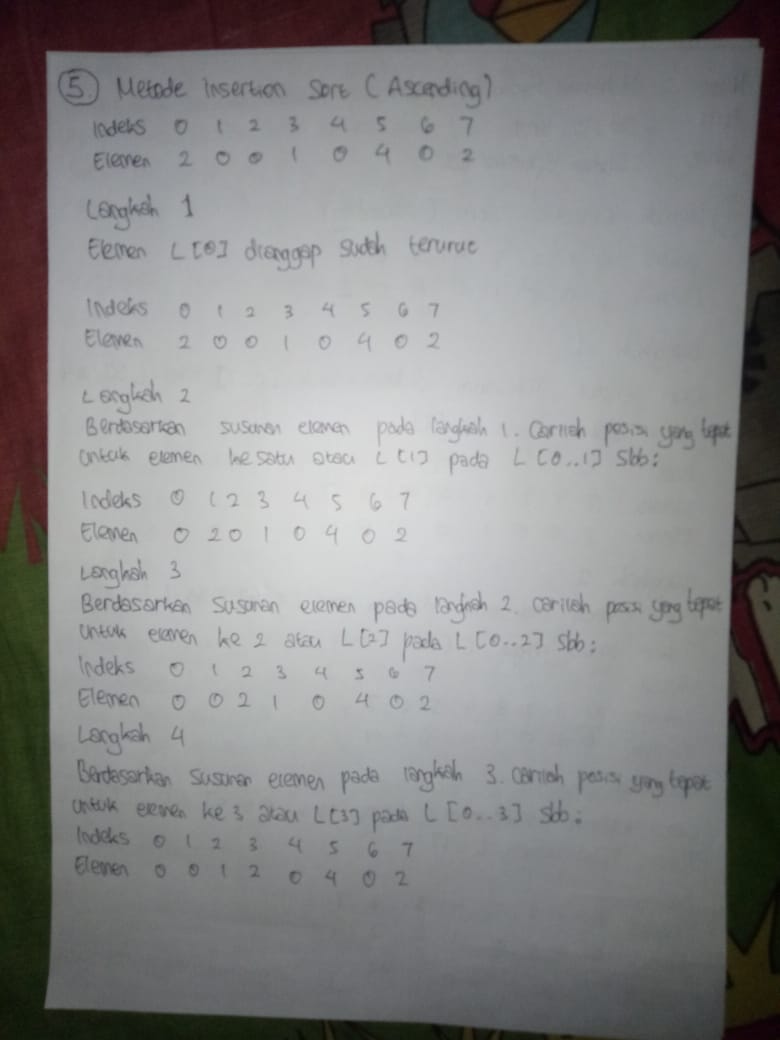 5. Metode Insertion Sort (Ascending)
Indeks 0 1 2 3 4 5 6 7
Elemen 2 0 0 1 0 4 0 2
Langkah 1
Elemen L[0] dianggap sudah terurut
Indeks 0 1 2 3 4 5 6 7
Elemen 2 0 0 1 0 4 0 2
Langkah 2
Berdasarkan susunan elemen pada langkah 1. Carilah posisi yang tepat
untuk elemen ke satu atau L[1] pada L[0..1] sbb:
Indeks 0 1 2 3 4 5 6 7
Elemen 0 2 0 1 0 4 0 2
Langkah 3
Berdasarkan susunan elemen pada langkah 2. carilah posisi yang tepat
untuk elemen ke 2 atau L[2] pada L[0..2] sbb:
Indeks 0 1 2 3 4 5 6 7
Elemen 0 0 2 1 0 4 0 2
Langkah 4
Berdasarkan susunan elemen pada langkah 3. carilah posisi yang tepat
untuk elemen ke 3 atau L[3] pada L[0..3] sbb:
Indeks 0 1 2 3 4 5 6 7
Elemen 0 0 1 2 0 4 0 2